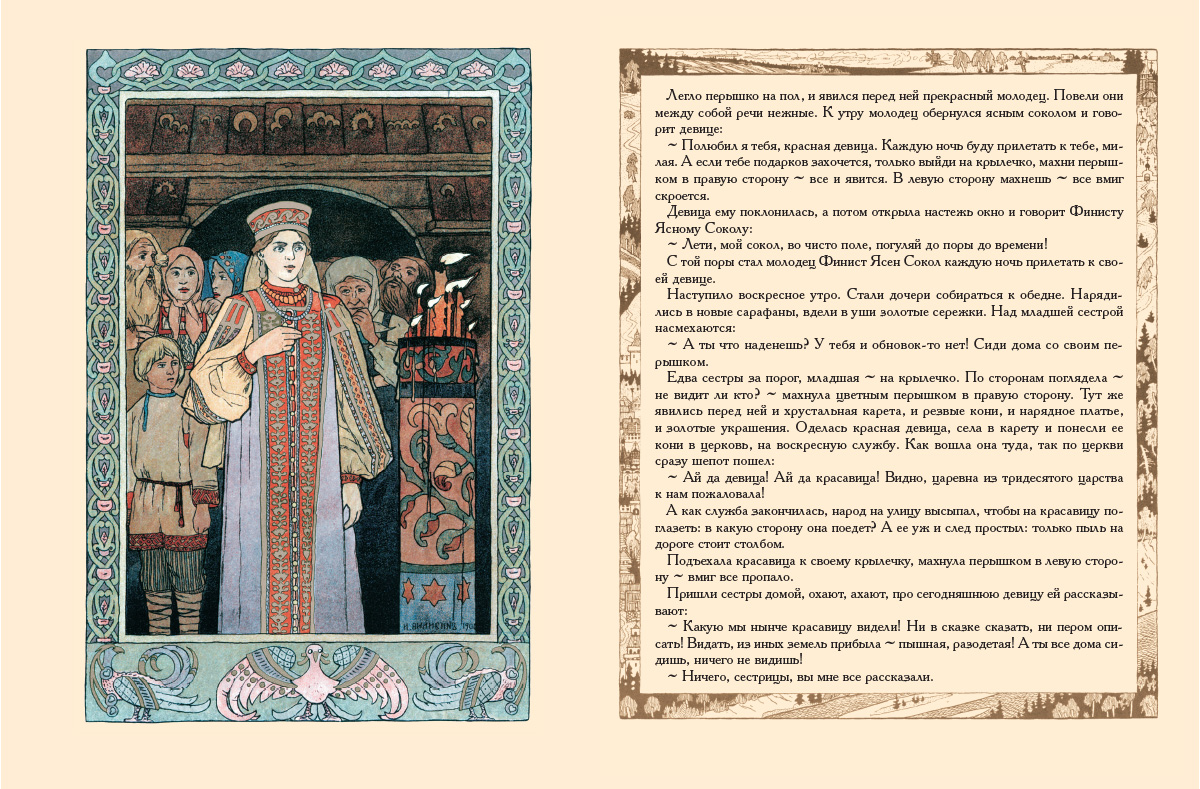 И. БИЛИБИНЪ 190
Легло перышко на пол, и явился перед ней прекрасный молодец. Повели они
между собой речи нежные. К утру молодец обернулся ясным соколом и гово-
рит девице:
~ Полюбил я тебя, красная девица. Каждую ночь буду прилетать к тебе, ми-
лая. А если тебе подарков захочется, только выйди на крылечко, махни перыш-
ком в правую сторону ~ все и явится. В левую сторону махнешь ~ все вмиг
скроется.
Девица ему поклонилась, а потом открыла настежь окно и говорит Финисту
Ясному Соколу:
~ Лети, мой сокол, во чисто поле, погуляй до поры до времени!
С той поры стал молодец Финист Ясен Сокол каждую ночь прилетать к сво-
ей девице.
Наступило воскресное утро. Стали дочери собираться к обедне. Наряди-
лись в новые сарафаны, вдели в уши золотые сережки. Над младшей сестрой
насмехаются:
~ А ты что наденешь? У тебя и обновок-то нет! Сиди дома со своим пе-
рышком.
Едва сестры за порог, младшая ~ на крылечко. По сторонам поглядела ~
не видит ли кто? ~ махнула цветным перышком в правую сторону. Тут же
явились перед ней и хрустальная карета, и резвые кони, и нарядное платье,
и золотые украшения. Оделась красная девица, села в карету и понесли ее
кони в церковь, на воскресную службу. Как вошла она туда, так по церкви
сразу шепот пошел:
~ Ай да девица! Ай да красавица! Видно, царевна из тридесятого царства
к нам пожаловала!
А как служба закончилась, народ на улицу высыпал, чтобы на красавицу по-
глазеть: в какую сторону она поедет? А ее уж и след простыл: только пыль на
дороге стоит столбом.
Подъехала красавица к своему крылечку, махнула перышком в левую сторо-
ну ~ вмиг все пропало.
Пришли сестры домой, охают, ахают, про сегодняшнюю девицу ей рассказы-
вают:
~ Какую мы нынче красавицу видели! Ни в сказке сказать, ни пером опи-
сать! Видать, из иных земель прибыла ~ пышная, разодетая! А ты все дома си-
дишь, ничего не видишь!
~ Ничего, сестрицы, вы мне все рассказали.